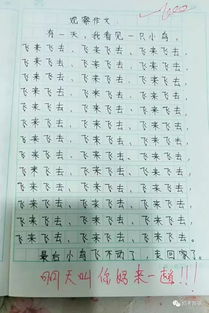 观察作文
有一天，我看见一只小鸟，
飞来飞去，飞来飞去，飞来飞去，
飞来飞去，飞来飞去，飞来飞去，
飞来飞去，飞来飞去，飞来飞去，
飞来飞去，飞来飞去，飞来飞去，
飞来飞去，飞来飞去，飞来飞去，
飞来飞去，飞来飞去，飞来飞去，
飞来飞去，飞来飞去，飞来飞去，
飞来飞去，飞来飞去，飞来飞去，
飞来飞去，飞来飞去，飞来飞去，
飞来飞去，飞来飞去，飞来飞去，
飞来飞去，飞来飞去，飞来飞去，
飞来飞去，飞来飞去，飞来飞去。
最后小鸟飞不动了，走回家了。
明天叫你妈来一趟!!!